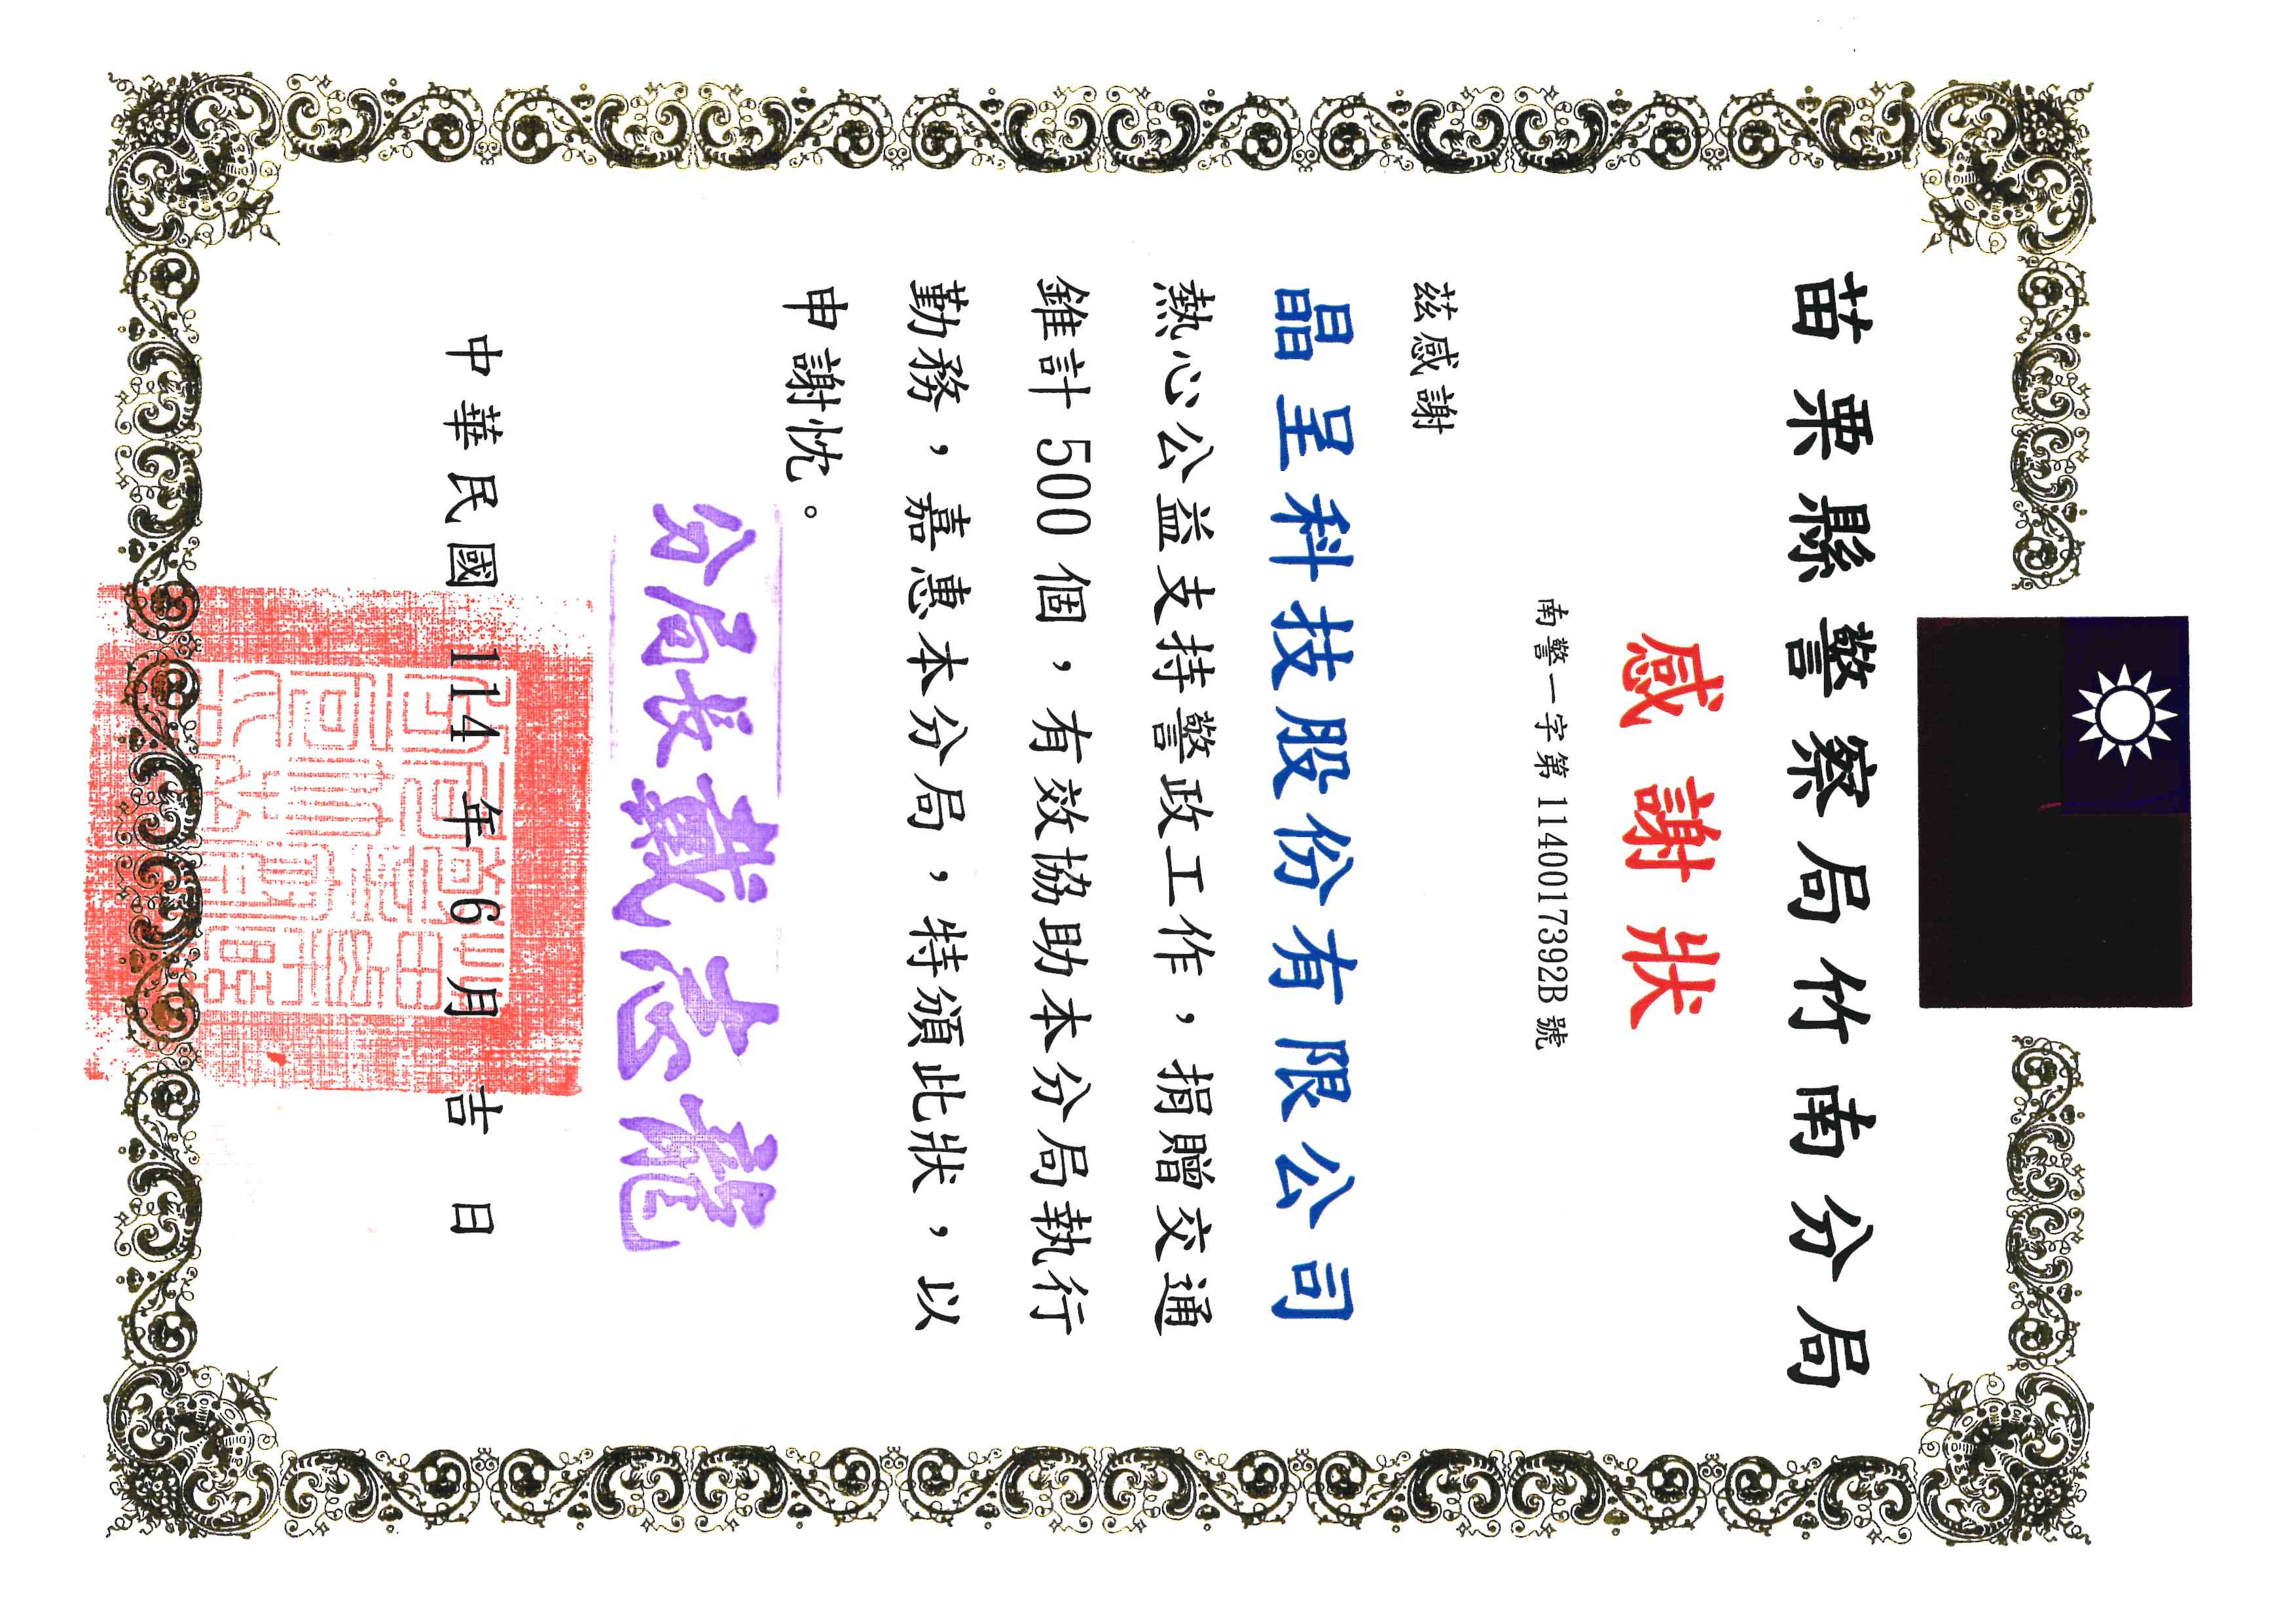 苗栗縣警察局竹南分局
感謝狀
南警一字第1140017392B號
茲感謝
晶呈科技股份有限公司
熱心公益支持警政工作，捐贈交通
錐計500個，有效協助本分局執行
勤務，嘉惠本分局，特頒此狀，以
申謝忱。
分局長戴志龍
中華民國114年6月吉日